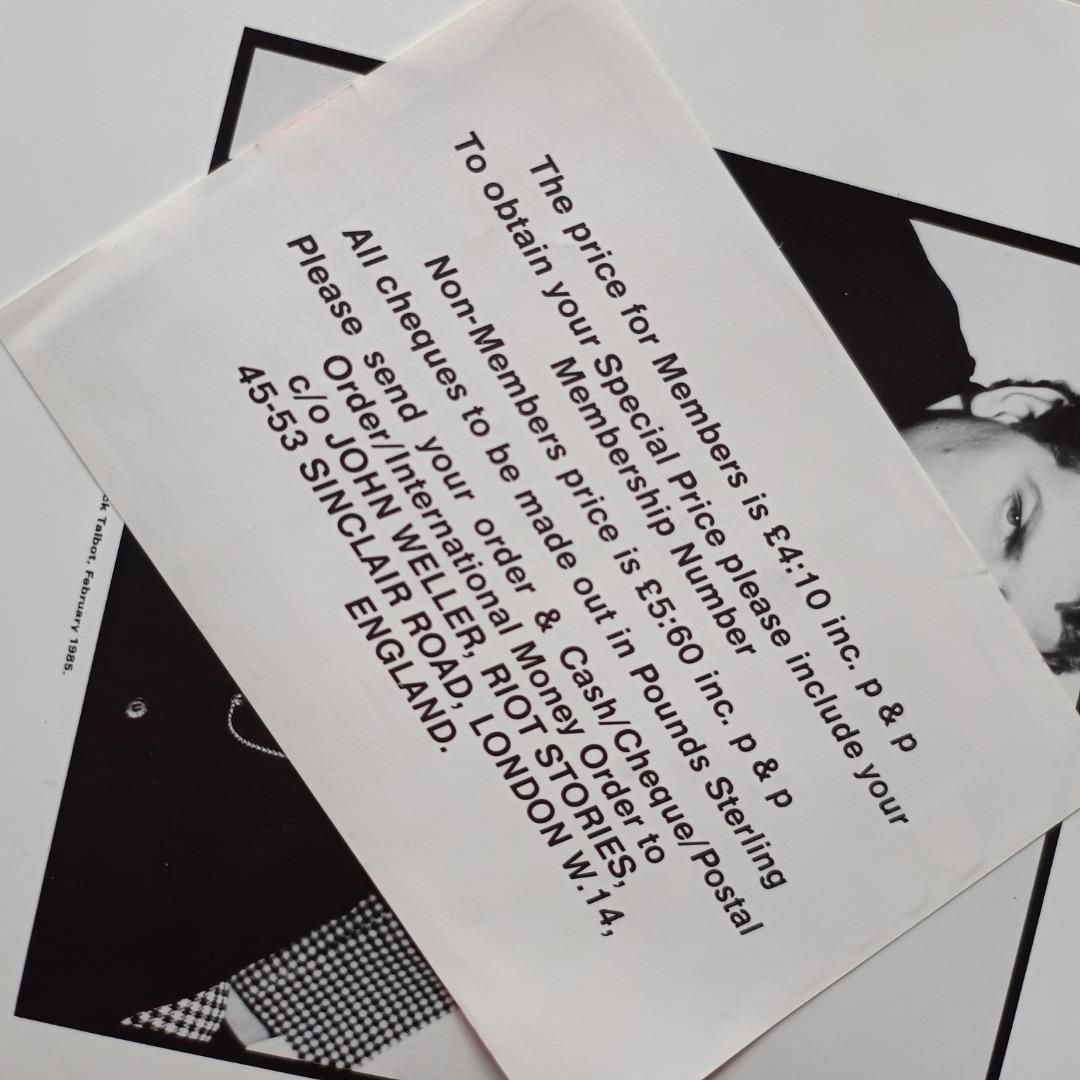 The price for Members is £4:10 inc. p & p
To obtain your Special Price please include your
Membership Number
Non-Members price is £5:60 inc. p & p
All cheques to be made out in Pounds Sterling
Please send your order & Cash/Cheque/Postal
Order/International Money Order to
c/o JOHN WELLER, RIOT STORIES,
45-53 SINCLAIR ROAD, LONDON W.14,
ENGLAND.
ck Talbot, February 1985.